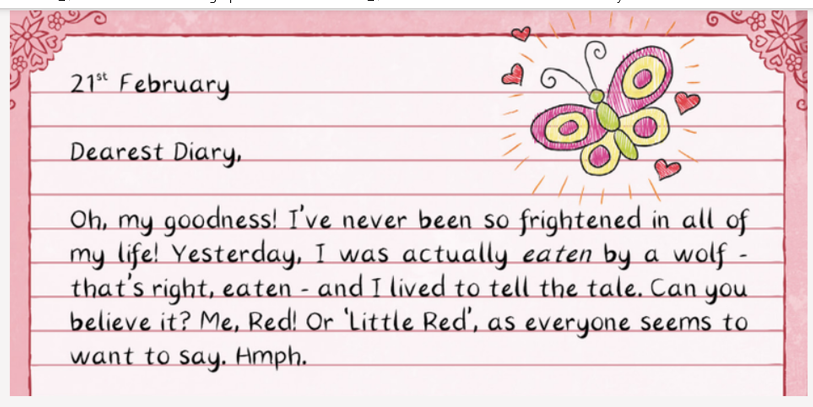 21st February
Dearest Diary,
Oh, my goodness! I've never been so frightened in all of
my life! Yesterday, I was actually eaten by a wolf -
that's right, eaten - and I lived to tell the tale. Can you
believe it? Me, Red! Or 'Little Red', as everyone seems to
want to say. Hmph.